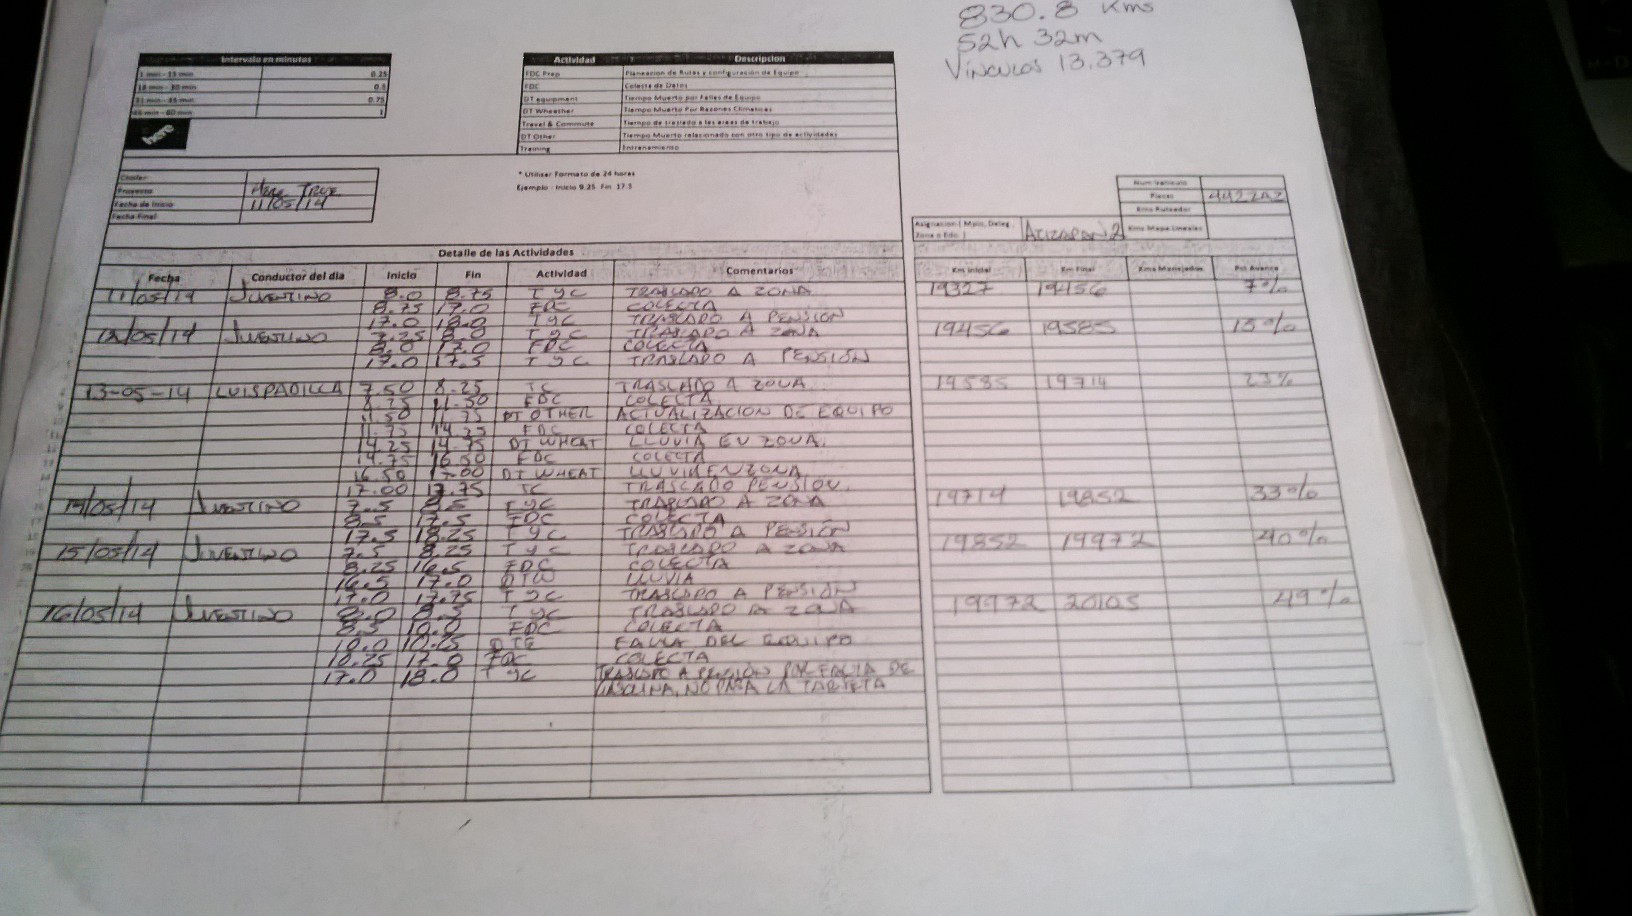 830.8 Kms
52h 32m
VÍNCULOS 13.379
Intervalo en minutos
1 min - 15 min 0.25
16 min - 30 min 0.5
31 min - 45 min 0.75
46 min - 60 min 1
here
Actividad Descripcion
FDC Prep Planeacion de Rutas y configuracion de Equipo
FDC Colecta de Datos
DT equipment Tiempo Muerto por Fallas de Equipo
DT Wheather Tiempo Muerto Por Razones Climaticas
Travel & Commute Tiempo de traslado a las areas de trabajo
DT Other Tiempo Muerto relacionado con otro tipo de actividades
Training Entrenamiento
* Utilizar Formato de 24 horas
Ejemplo : Inicio 9.25 Fin 17.5
Proyecto HERE TRUE
Fecha de Inicio 11/05/14
Fecha Final
Num Vehiculo
Placas
Kms Ruteador
Asignacion ( Mpio, Deleg, Zona o Edo. ) ATIZAPAN 2 Kms Mapa Lineales
Detalle de las Actividades
Fecha Conductor del dia Inicio Fin Actividad Comentarios Km Inicial Km Final Kms Manejados Pct Avance
11/05/14 JUVENTINO 8.0 8.75 T y C TRASLADO A ZONA 19327 19456 7%
8.75 17.0 FDC COLECTA
17.0 18.0 T y C TRASLADO A PENSIÓN
12/05/14 JUVENTINO 7.25 8.0 T y C TRASLADO A ZONA 19456 19585 15%
8.0 17.0 FDC COLECTA
17.0 17.5 T y C TRASLADO A PENSIÓN
13-05-14 LUIS PADILLA 7.50 8.25 TC TRASLADO A ZONA 19585 19714 23%
11.50 FDC COLECTA
11.50 DT OTHER ACTUALIZACION DE EQUIPO
11.75 14.25 FDC COLECTA
14.25 14.75 DT WHEAT LLUVIA EN ZONA.
14.75 16.50 FDC COLECTA
16.50 17.00 DT WHEAT LLUVIA EN ZONA
17.00 17.75 TC TRASLADO PENSION.
14/05/14 JUVENTINO 7.5 8.5 T y C TRASLADO A ZONA 19714 19852 33%
8.5 17.5 FDC COLECTA
17.5 18.25 T y C TRASLADO A PENSIÓN
15/05/14 JUVENTINO 7.5 8.25 T y C TRASLADO A ZONA 19852 19972 40%
8.25 16.5 FDC COLECTA
16.5 17.0 DTW LLUVIA
17.0 17.75 T y C TRASLADO A PENSIÓN
16/05/14 JUVENTINO 8.0 8.5 T y C TRASLADO A ZONA 19972 20105 49%
8.5 10.0 FDC COLECTA
10.0 10.25 DTE FALLA DEL EQUIPO
10.25 17.0 FDC COLECTA
17.0 18.0 T y C TRASLADO A PENSIÓN POR FALTA DE
GASOLINA, NO PASA LA TARJETA